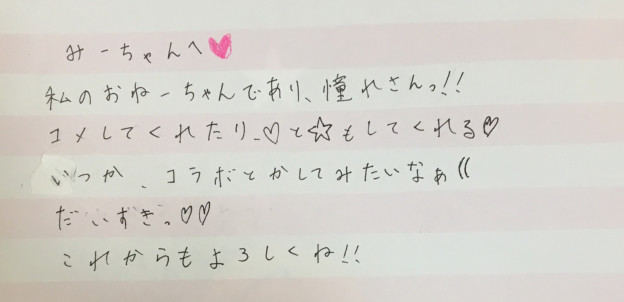 みーちゃんへ♥
私のおねーちゃんであり、憧れさんっ!!
コメしてくれたり、♡と☆もしてくれる♡
いつか、コラボとかしてみたいなぁ((
だいすきっ♡♡
これからもよろしくね!!